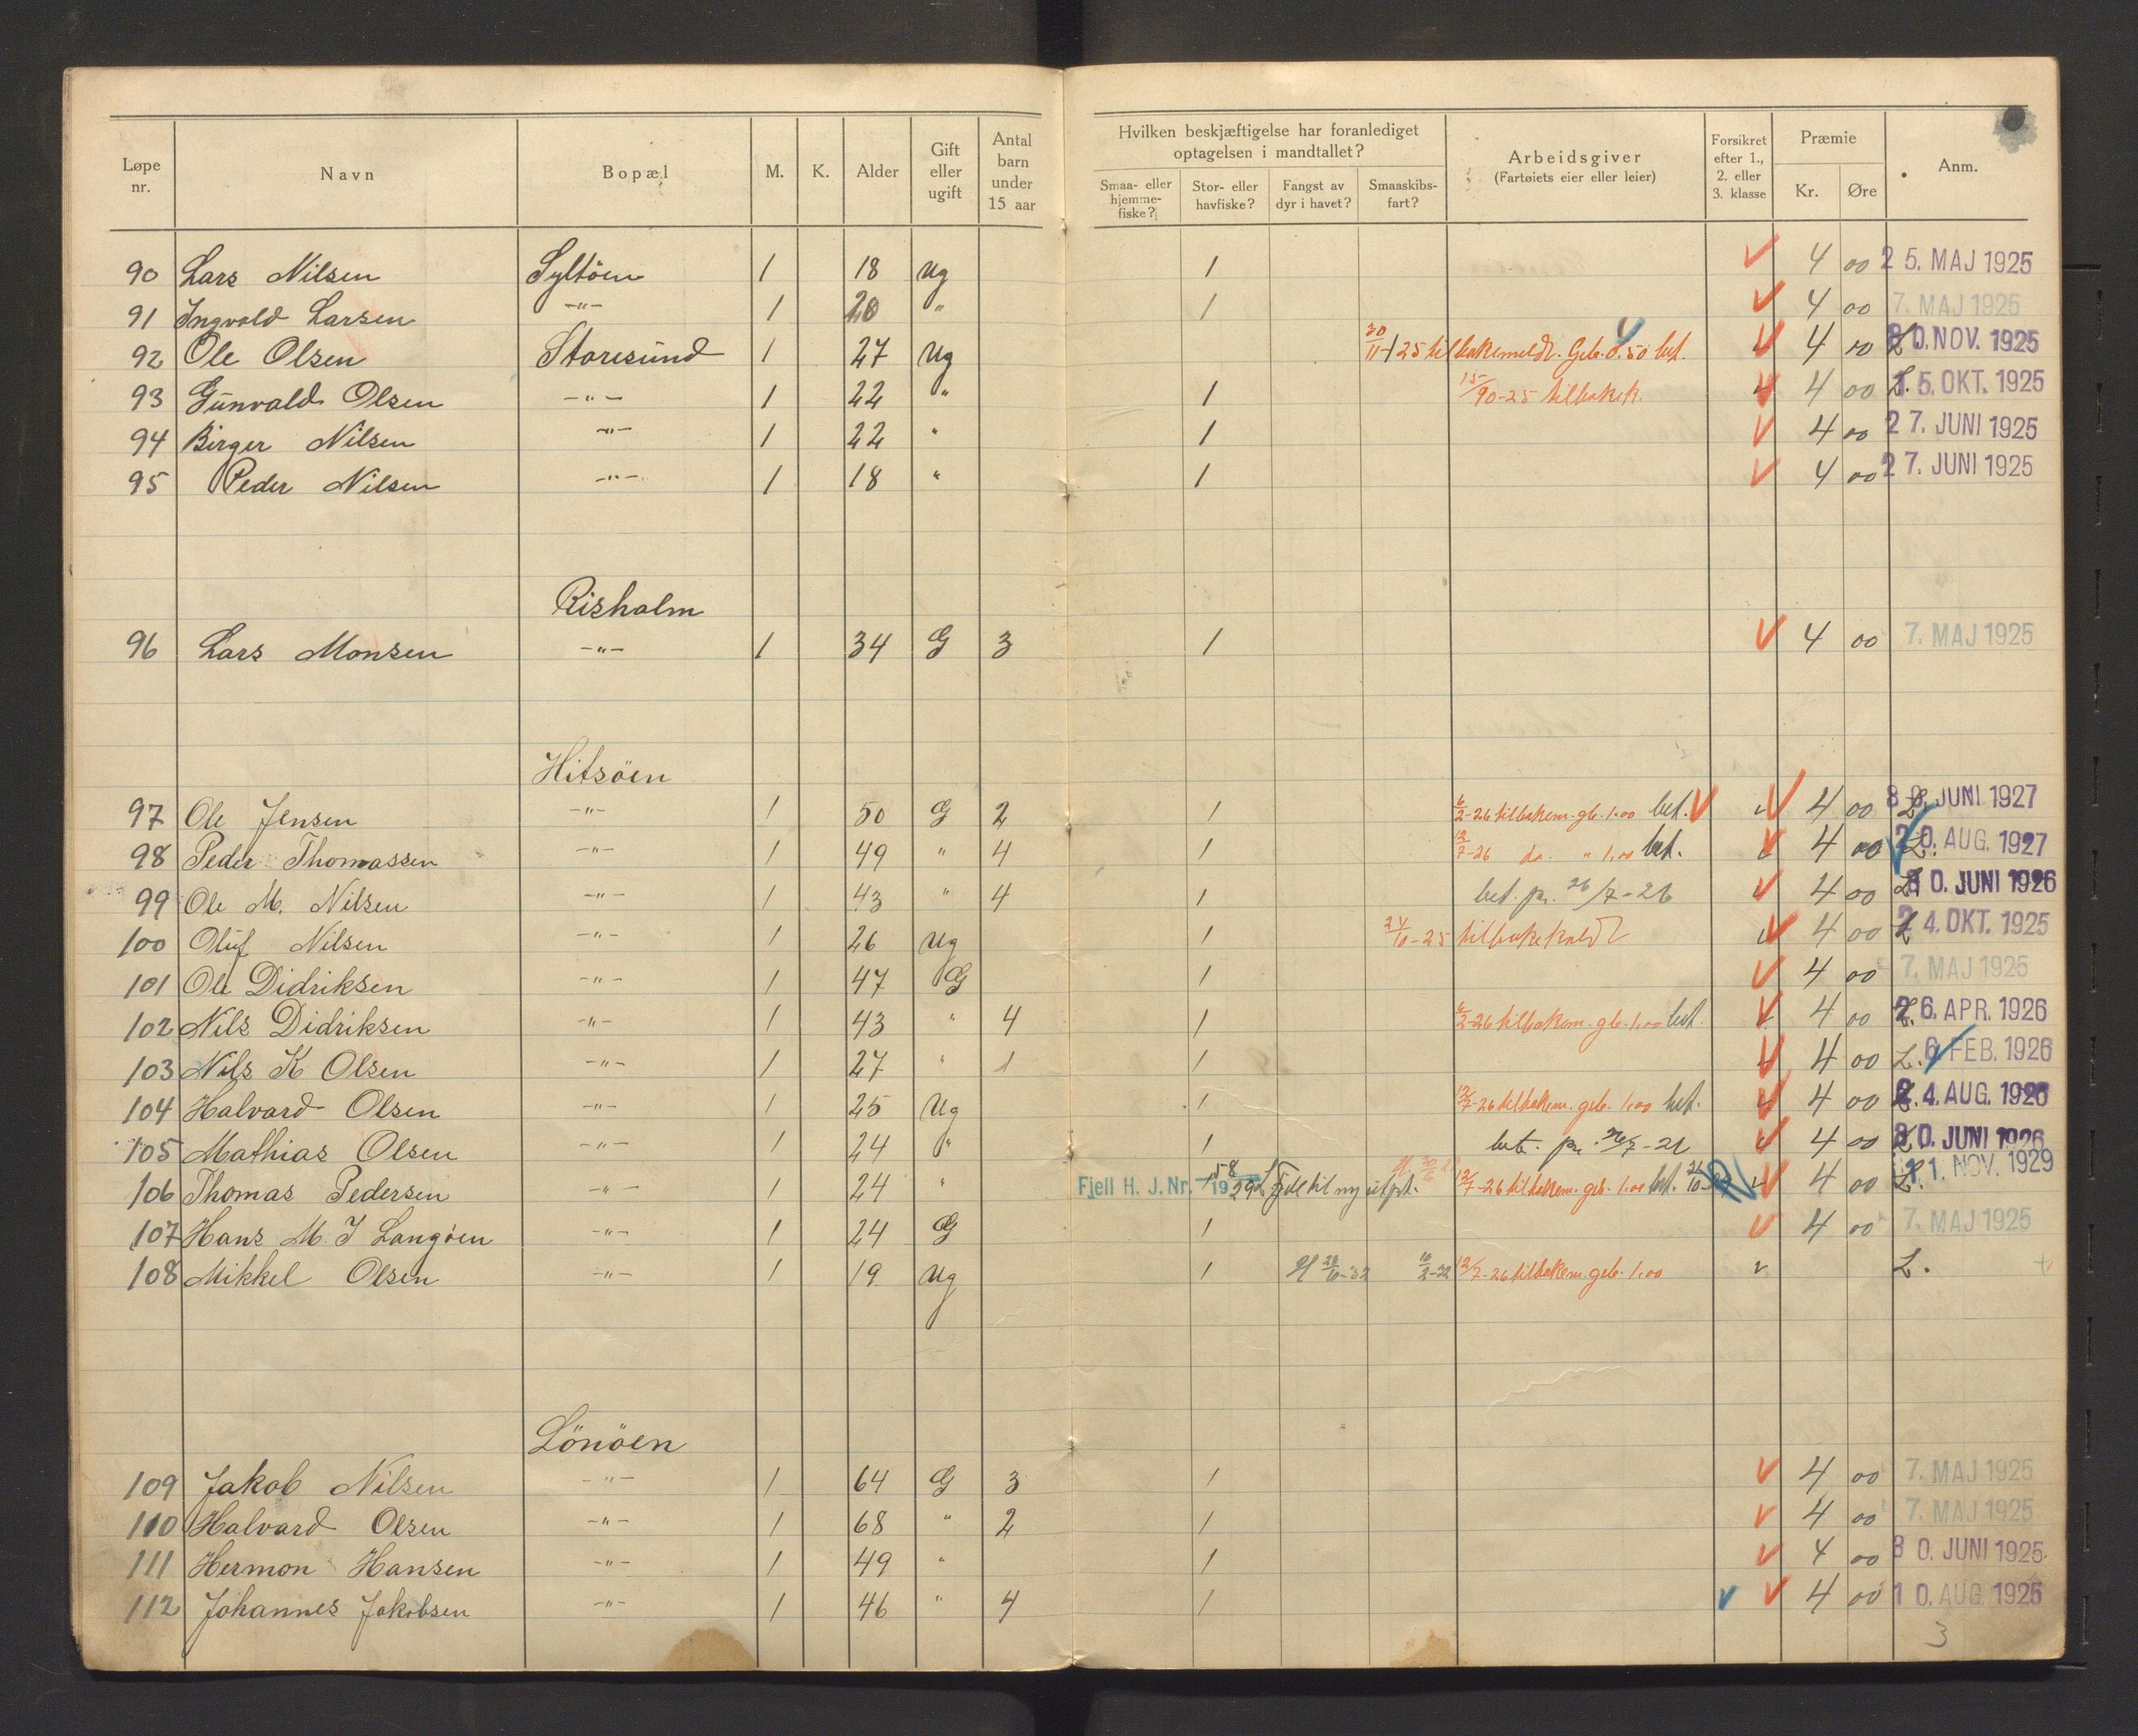 Løpe nr. Navn Bopæl M. K. Alder Gift eller ugift Antal barn under 15 aar Hvilken beskjæftigelse har foranlediget optagelsen i mandtallet? Smaa- eller hjemme-fiske? Stor- eller havfiske? Fangst av dyr i havet? Smaaskibs-fart? Arbeidsgiver (Fartøiets eier eller leier) Forsikret efter 1., 2. eller 3. klasse Præmie Kr. Øre Anm.
90 Lars Nilsen Syltöen 1 18 Ug 1 4 00 25. MAJ 1925
91 Ingvald Larsen -"- 1 20 " 1 4 00 7. MAJ 1925
92 Ole Olsen Storesund 1 27 Ug 30/11-25 tilbakemeldt. Geb. 0.50 bet. 4 00 L 30. NOV. 1925
93 Gunvald Olsen -"- 1 22 " 1 tilbakek. 4 00 L. 15. OKT. 1925
94 Birger Nilsen -"- 1 22 " 1 4 00 27. JUNI 1925
95 Peder Nilsen -"- 1 18 " 1 4 00 27. JUNI 1925
Risholm
96 Lars Monsen -"- 1 34 G 3 1 4 00 7. MAJ 1925
Hitsöen
97 Ole Jensen -"- 1 50 G 2 1 6/2-26 tilbakem. gb. 1.00 bet. 4 00 L. JUNI 1927
98 Peder Thomassen -"- 1 49 " 4 1 12/7-26 do. " 1.00 bet. 4 00 L. 20. AUG. 1927
99 Ole M. Nilsen -"- 1 43 " 4 1 bet. pr. 26/7-26 4 00 L. 30. JUNI 1926
100 Oluf Nilsen -"- 1 26 Ug 1 24/10-25 tilbakekaldt 4 00 L 24. OKT. 1925
101 Ole Didriksen -"- 1 47 G 1 4 00 7. MAJ 1925
102 Nils Didriksen -"- 1 43 " 4 1 6/2-26 tilbakem. gb. 1.00 bet. 4 00 L. 26. APR. 1926
103 Nils K Olsen -"- 1 27 " 1 1 4 00 L. 6 FEB. 1926
104 Halvard Olsen -"- 1 25 Ug 1 12/7-26 tilbakem. geb. 1.00 bet. 4 00 L. 24. AUG. 1926
105 Mathias Olsen -"- 1 24 " 1 bet. pr. 26/7-26 4 00 L 30. JUNI 1926
106 Thomas Pedersen -"- 1 24 " Fjell H. J. Nr. 158 1929 til ny utpt. 12/7-26 tilbakem. geb. 1.00 bet. 4 00 L. 11. NOV. 1929
107 Hans M. J Langöen -"- 1 24 G 1 4 00 7. MAJ 1925
108 Mikkel Olsen -"- 1 19 Ug 1 12/7-26 tilbakem. geb. 1.00 L.
Lönöen
109 Jakob Nilsen -"- 1 64 G 3 1 4 00 7. MAJ 1925
110 Halvard Olsen -"- 1 68 " 2 1 4 00 7. MAJ 1925
111 Hermon Hansen -"- 1 49 " 1 4 00 30. JUNI 1925
112 Johannes Jakobsen -"- 1 46 " 4 1 4 00 10. AUG. 1925
3